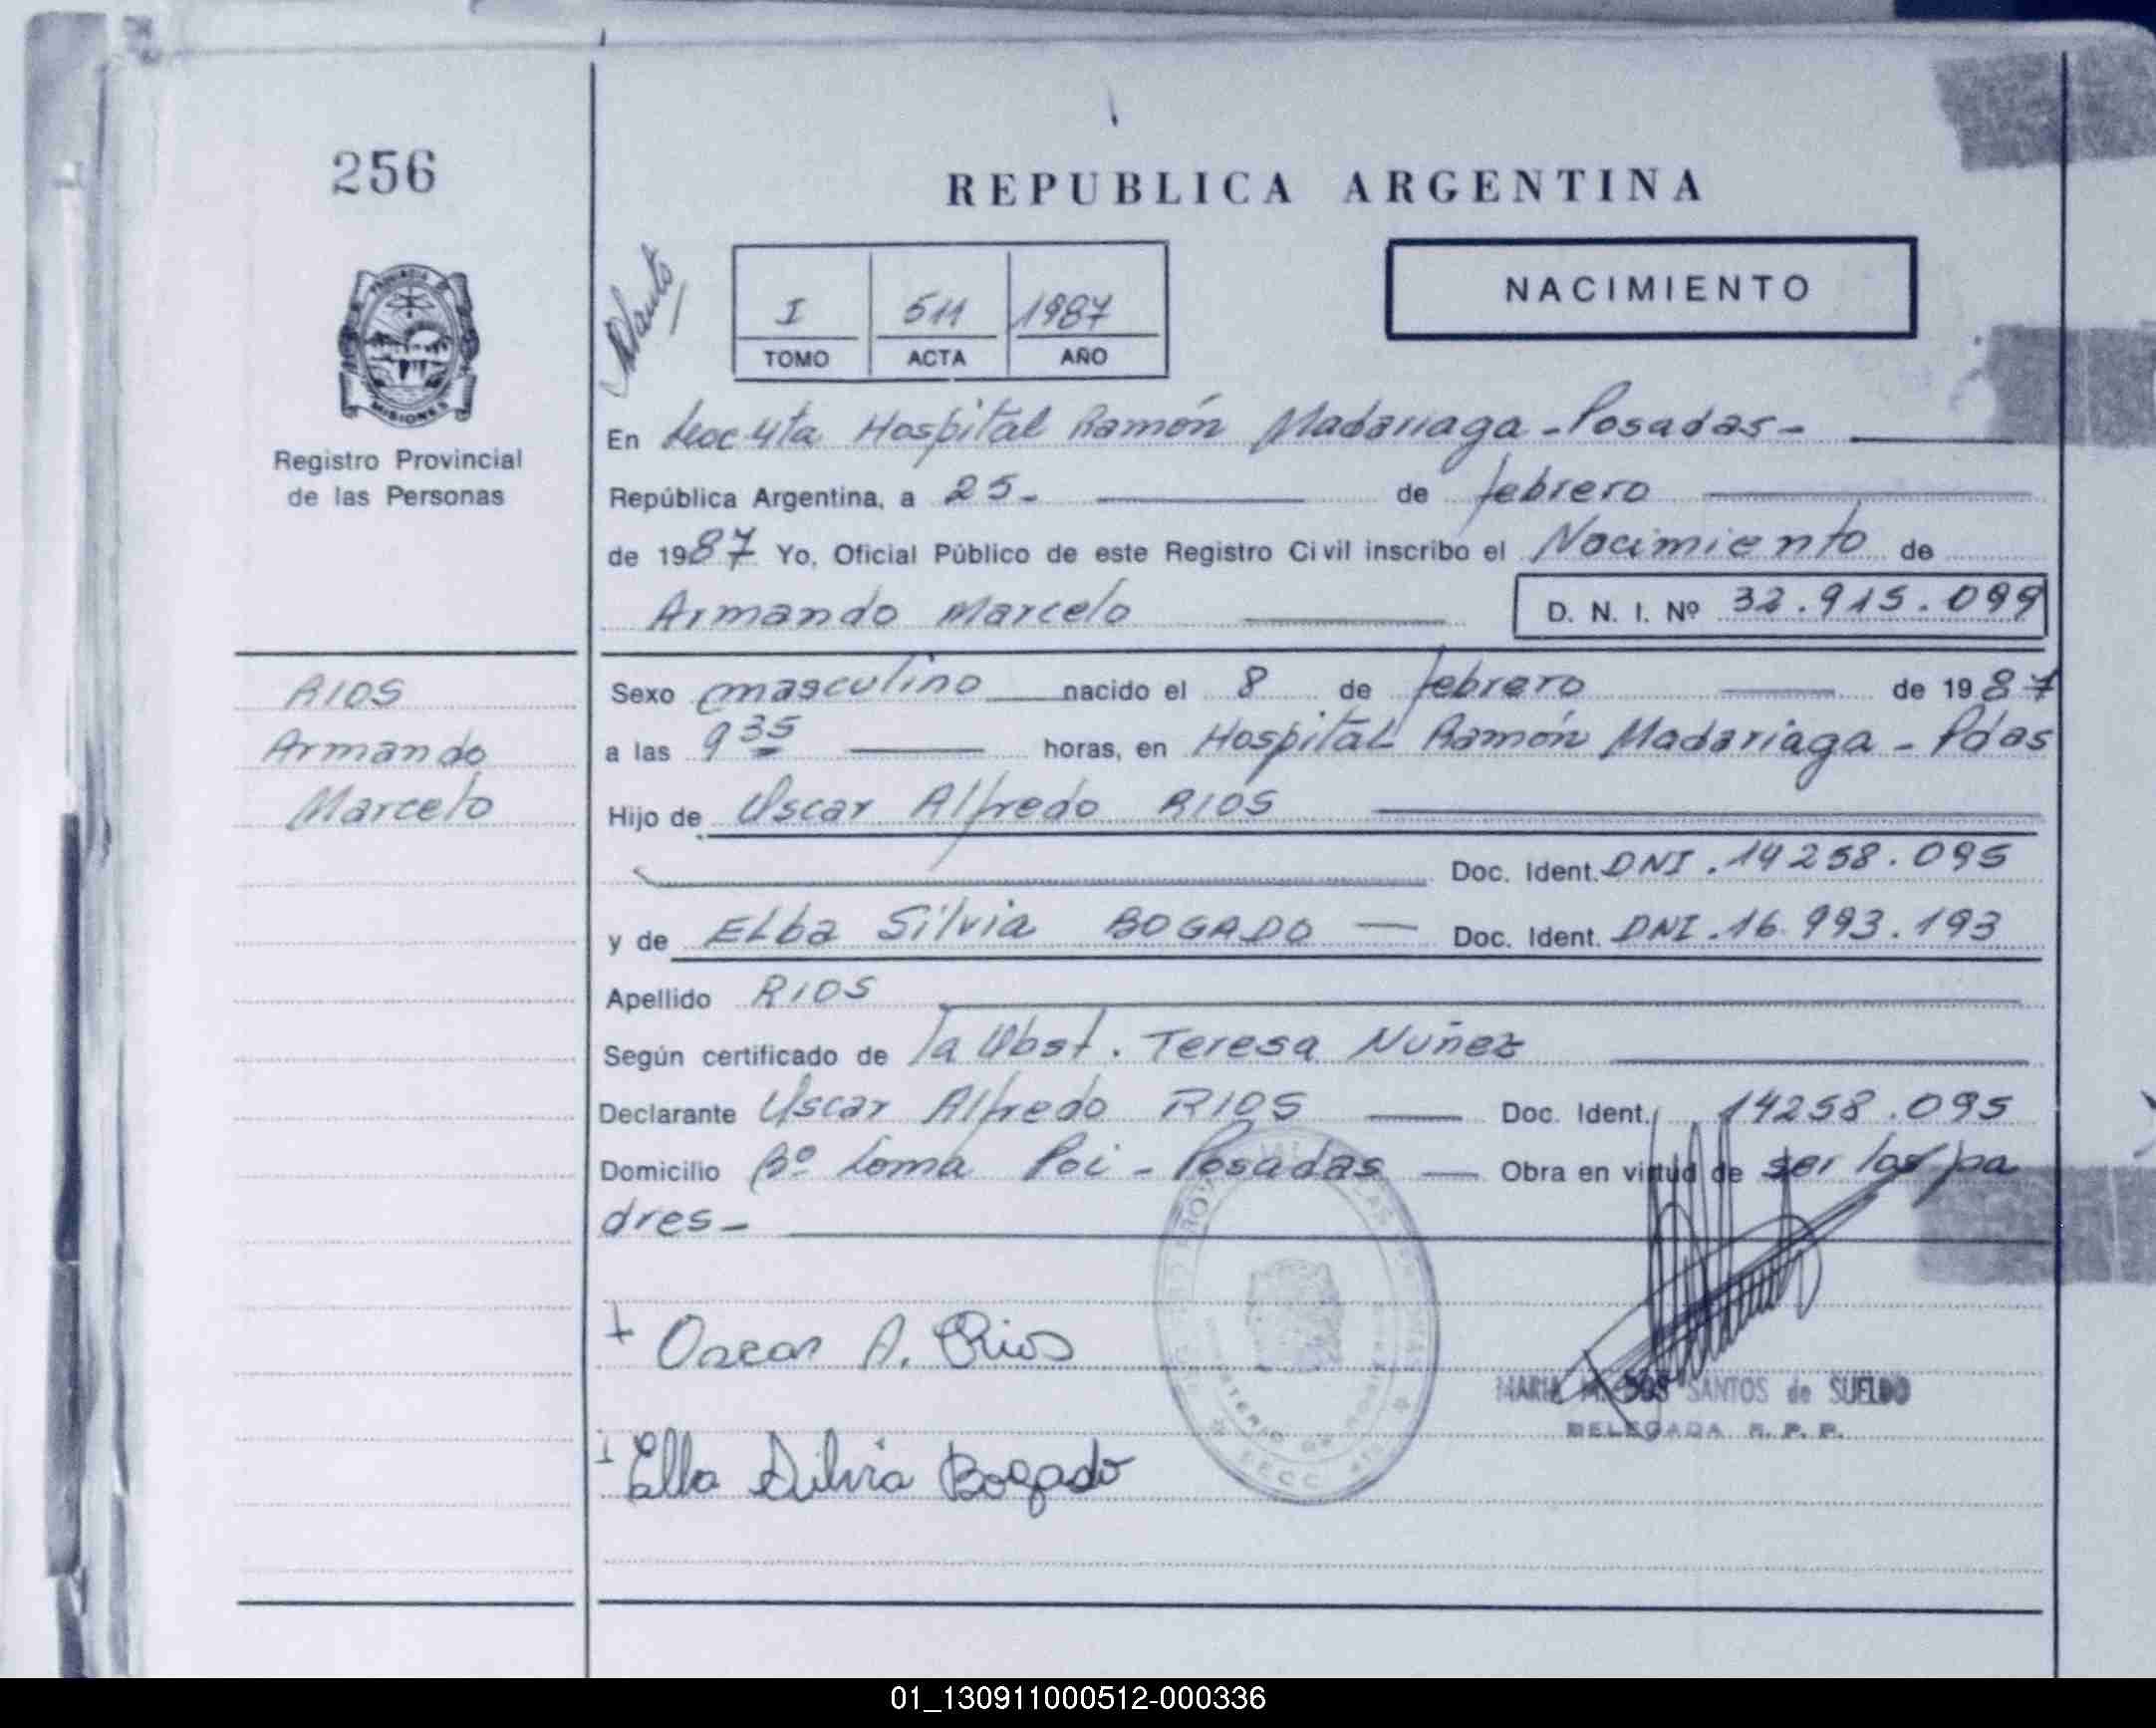 256
REPUBLICA ARGENTINA
I 511 1987
TOMO ACTA AÑO
NACIMIENTO
MISIONES
Registro Provincial
de las Personas
En Secc 4ta Hospital Ramón Madariaga - Posadas -
República Argentina, a 25 - de febrero
de 1987 Yo, Oficial Público de este Registro Civil inscribo el Nacimiento de
Armando Marcelo D. N. I. Nº 32.915.099
RIOS
Armando
Marcelo
Sexo masculino nacido el 8 de febrero de 1987
a las 9 35 horas, en Hospital Ramón Madariaga - Pdas
Hijo de Oscar Alfredo RIOS
Doc. Ident. DNI. 14258.095
y de Elba Silvia BOGADO — Doc. Ident. DNI. 16.993.193
Apellido RIOS
Según certificado de la Obst. Teresa Nuñez
Declarante Oscar Alfredo RIOS — Doc. Ident. 14258.095
Domicilio Bº Loma Poi - Posadas — Obra en virtud de ser los pa
dres -
Oscar A. Rios
MARIA M. DOS SANTOS de SUELDO
DELEGADA R. P. P.
Elba Silvia Bogado
01_130911000512-000336